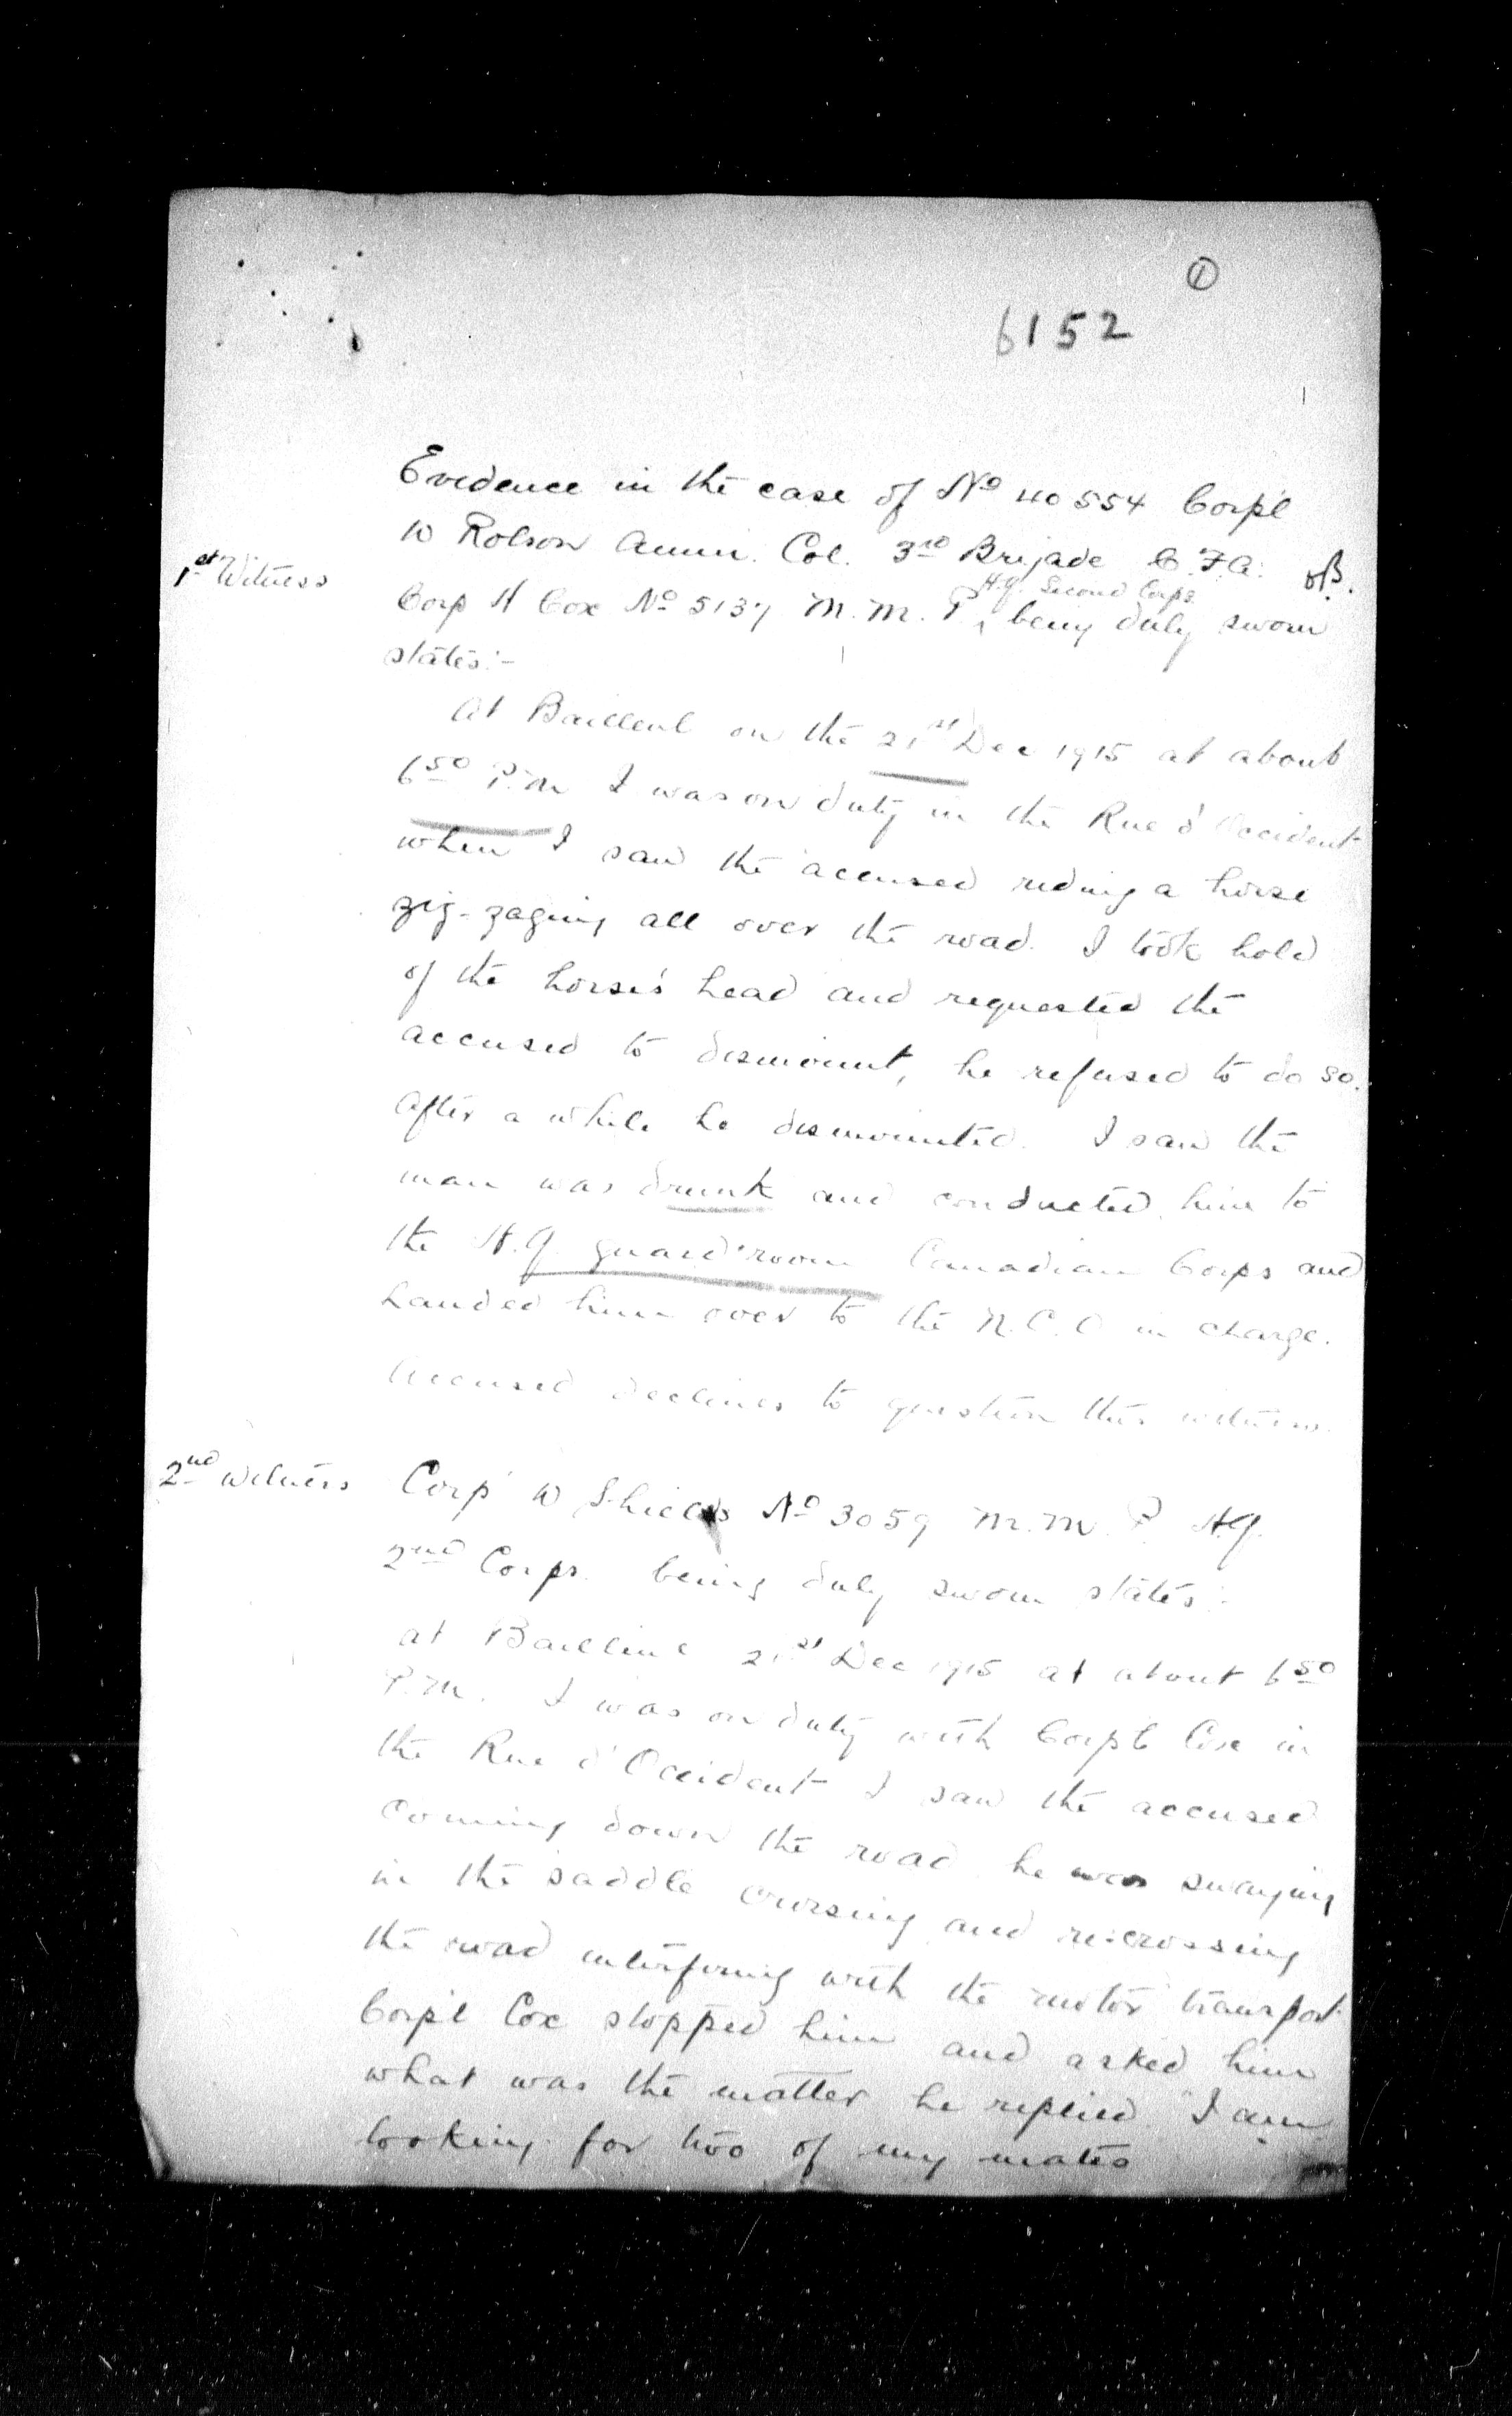 ①
6152
Evidence in the case of No 40554 Corp'l
W Robson Amm. Col. 3rd Brigade C.F.A.
1st Witness
H.Q. Second Corps
Corp H Cox No 5137 M.M.P. being duly sworn
states:-
At Bailleul on the 21st Dec 1915 at about
6 50 P.M I was on duty in the Rue d'Occident
when I saw the accused riding a horse
zig-zaging all over the road. I took hold
of the horse's head and requested the
accused to dismount, he refused to do so.
After a while he dismounted. I saw the
man was drunk and conducted him to
the H.Q. guard room Canadian Corps and
handed him over to the N.C.O in charge.
Accused declines to question this witness.
2nd Witness Corp W Shields No 3059 M.M.P. H.Q.
2nd Corps. being duly sworn states:-
at Bailleul 21st Dec 1915 at about 6 50
P.M. I was on duty with Corpl Cox in
the Rue d'Occident I saw the accused
coming down the road he was swaying
in the saddle crossing and re-crossing
the road interfering with the motor transport
Corp'l Cox stopped him and asked him
what was the matter he replied "I am
looking for two of my mates